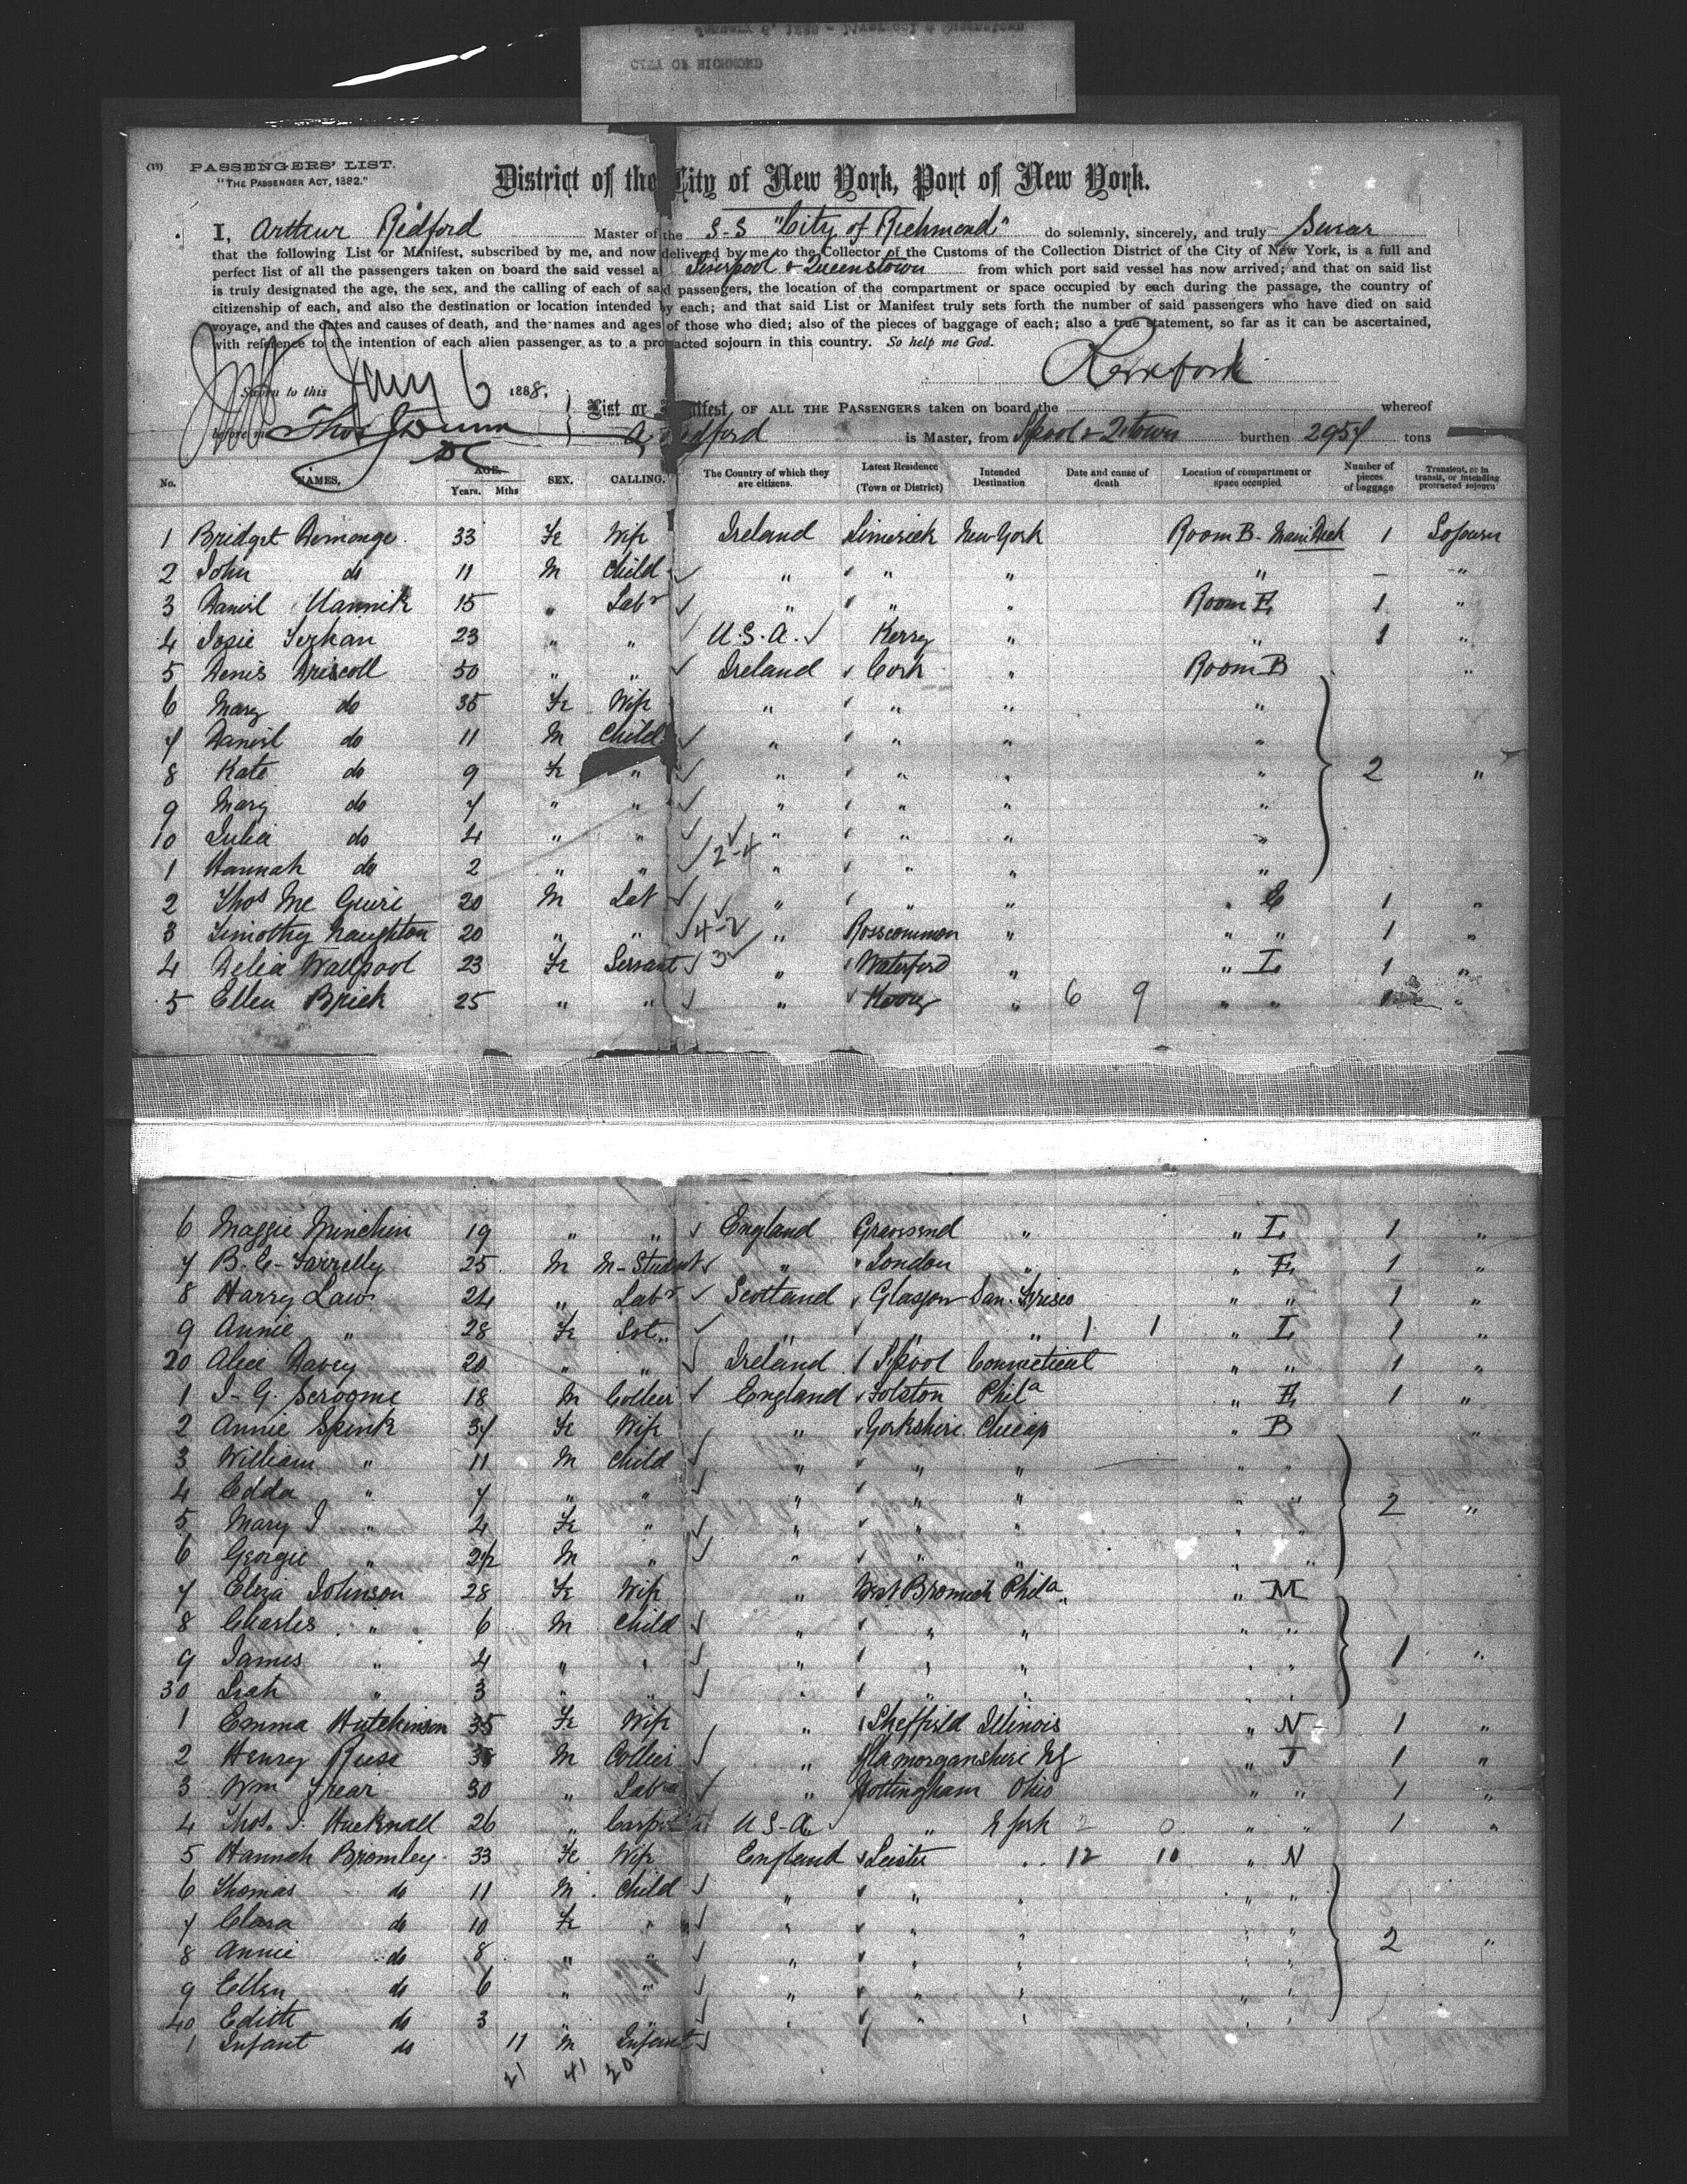 CITY OF RICHMOND
(13) PASSENGERS' LIST.
"THE PASSENGER ACT, 1882."
District of the City of New York, Port of New York.
I, Arthur Redford Master of the S-S "City of Richmond" do solemnly, sincerely, and truly Swear
that the following List or Manifest, subscribed by me, and now delivered by me to the Collector of the Customs of the Collection District of the City of New York, is a full and
perfect list of all the passengers taken on board the said vessel a Liverpool & Queenstown from which port said vessel has now arrived; and that on said list
is truly designated the age, the sex, and the calling of each of said passengers, the location of the compartment or space occupied by each during the passage, the country of
citizenship of each, and also the destination or location intended by each; and that said List or Manifest truly sets forth the number of said passengers who have died on said
voyage, and the dates and causes of death, and the names and ages of those who died; also of the pieces of baggage of each; also a true statement, so far as it can be ascertained,
with reference to the intention of each alien passenger as to a protracted sojourn in this country. So help me God.
Sworn to this Jany 6 1888,
before me Thos J Dunn
List or Manifest OF ALL THE PASSENGERS taken on board the whereof
A Redford is Master, from Lpool & Qtown burthen 2957 tons
No. NAMES. AGE. Years. Mths SEX. CALLING. The Country of which they are citizens. Latest Residence (Town or District) Intended Destination Date and cause of death Location of compartment or space occupied Number of pieces of baggage Transient, or in transit, or intending protracted sojourn
1 Bridget 33 Fe Wife Ireland Limerick New York Room B - Main Deck 1 Sojourn
2 John do 11 M Child " " " " - "
3 Daniel 15 " Labr " " " Room E 1 "
4 Josie 23 " " U.S.A. Kerry " " 1 "
5 Denis Driscoll 50 " " Ireland Cork " Room B "
6 Mary do 35 Fe Wife " " " "
7 Daniel do 11 M Child " " " "
8 Kate do 9 Fe " " " " " 2 "
9 Mary do 7 " " " " " "
10 Julia do 4 " " " " " "
1 Hannah do 2 " " 2-4 " " " "
2 Thos Mc Guire 20 M Lab " " " " E 1 "
3 Timothy Naughton 20 " " 4-2 " Rosscommon " " " 1 "
4 Delia Wallpool 23 Fe Servant 3 " Waterford " " L 1 "
5 Ellen Brick 25 " " " Kerry " 6 9 " " 1 "
6 Maggie Minchin 19 " " England Gravesend " " L 1 "
7 B. C. Farrelly 25 M M-Student " London " " E 1 "
8 Harry Law 24 " Labr Scotland Glasgow San. Frisco " " 1 "
9 Annie " 28 Fe " " " 1 1 " L 1 "
20 Alice Davey 20 " " Ireland Lpool Connecticut " " 1 "
1 J- G. Scroome 18 M Collier England Folston Phila " E 1 "
2 Annie Spink 37 Fe Wife " Yorkshire Chicago " B
3 William " 11 M Child " " " " "
4 Edda " 7 " " " " " " " 2 "
5 Mary J " 4 Fe " " " " " "
6 Georgie " 2½ M " " " " " "
7 Eliza Johnson 28 Fe Wife " West Bromwich Phila " M
8 Charles " 6 M Child " " " " "
9 James " 4 " " " " " " " 1 "
30 Leah " 3 " " " " " " "
1 Emma Hutchinson 35 Fe Wife " Sheffield Illinois " N 1 "
2 Henry Rusa M Collier " Glamorganshire NY " J 1 "
3 Wm Frear 30 " Labr " Nottingham Ohio " " 1 "
4 Thos. J. Hucknall 26 " U S-A " N York 2 0 " " 1 "
5 Hannah Bromley 33 Fe Wife England Leister " 12 10 " N
6 Thomas do 11 M Child " " " " "
7 Clara do 10 Fe " " " " " "
8 Annie do 8 " " " " " " " 2 "
9 Ellen do 6 " " " " " " "
40 Edith do 3 " " " " " " "
1 Infant do 11 M Infant
21 41 20